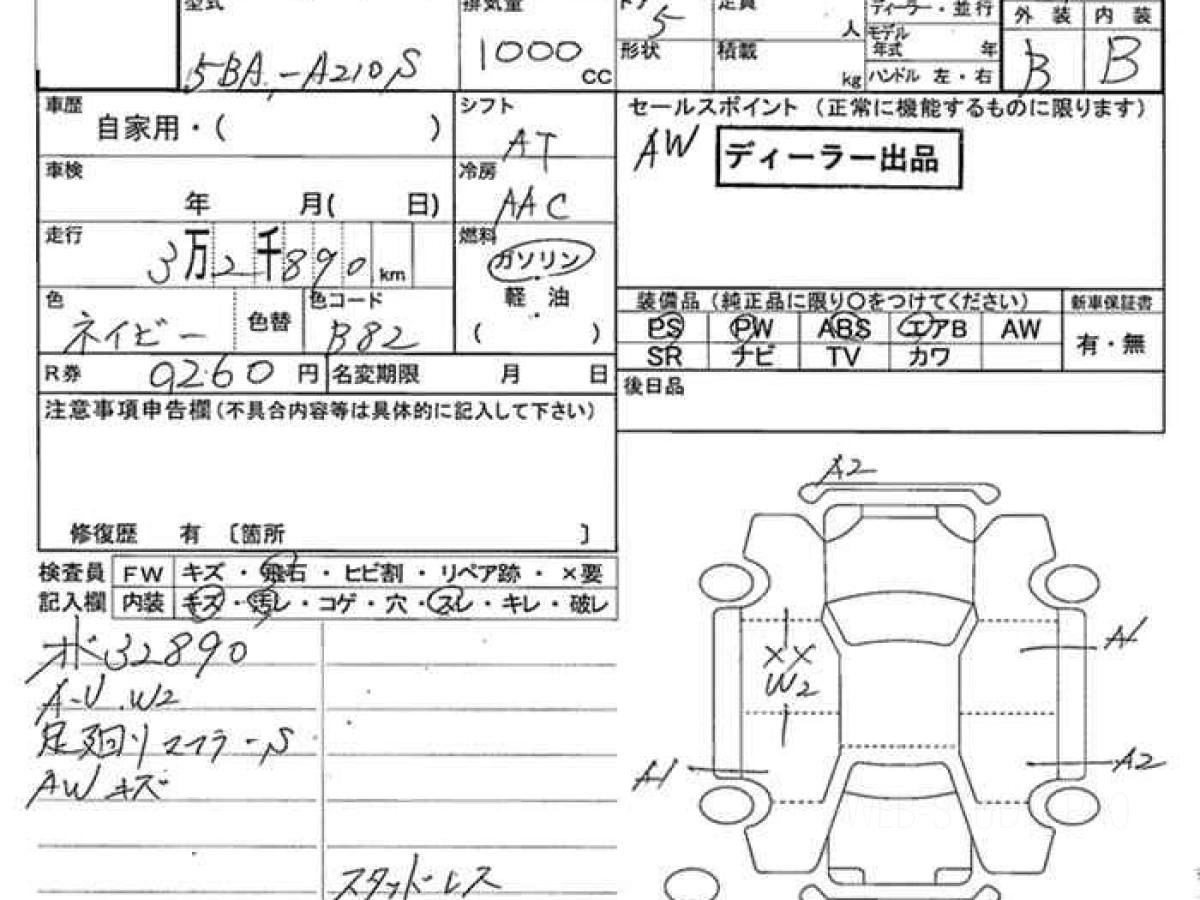 型式 排気量 ドア 5 定員 人 ディーラー・並行 外装 内装
5BA-A210S 1000 cc 形状 積載 kg モデル年式 年 B B
ハンドル 左・右
車歴 自家用・( ) シフト AT セールスポイント (正常に機能するものに限ります)
AW ディーラー出品
車検 年 月( 日) 冷房 AAC
走行 3万2千890 km 燃料 ガソリン
軽油
( )
色 ネイビー 色替 色コード B82
装備品 (純正品に限り〇をつけてください) 新車保証書
PS PW ABS エアB AW 有・無
SR ナビ TV カワ
R券 9260 円 名変期限 月 日 後日品
注意事項申告欄(不具合内容等は具体的に記入して下さい)
修復歴 有 〔箇所 〕
検査員 FW キズ・飛石・ヒビ割・リペア跡・×要
記入欄 内装 キズ・汚レ・コゲ・穴・スレ・キレ・破レ
オド32890
A-U.W2
足廻りマフラーS
AWキズ
スタッドレス
A2
XX
W2
A1
A1
A2